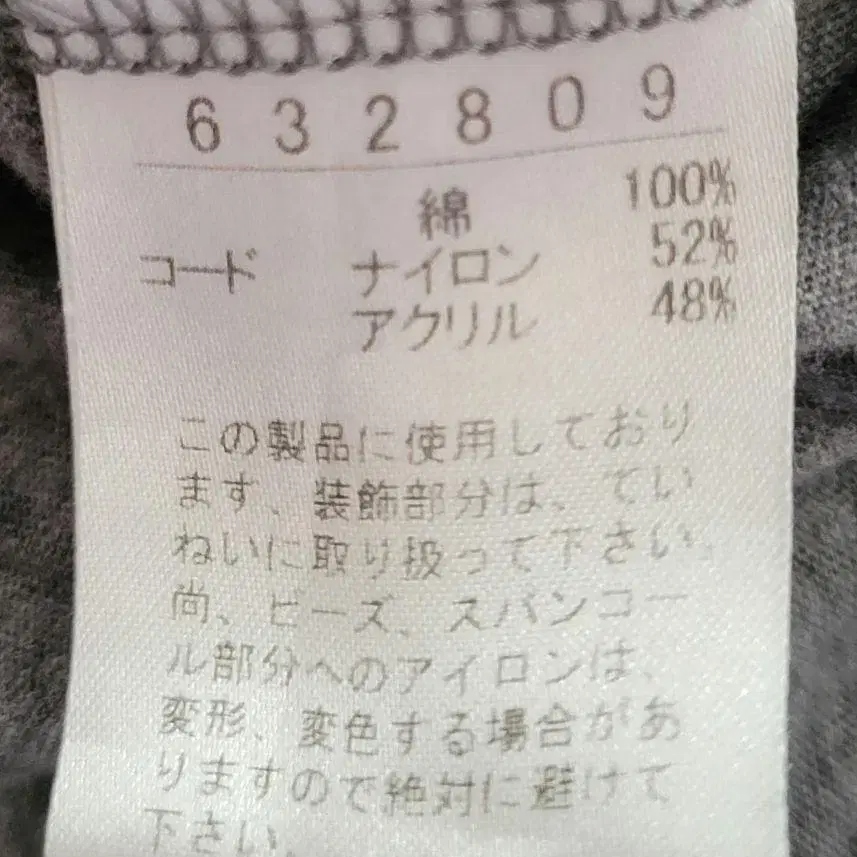 632809
綿 100%
コード ナイロン 52%
アクリル 48%
この製品に使用しており
ます、装飾部分は、てい
ねいに取り扱って下さい。
尚、ビーズ、スパンコー
ル部分へのアイロンは、
変形、変色する場合があ
りますので絶対に避けて
下さい。